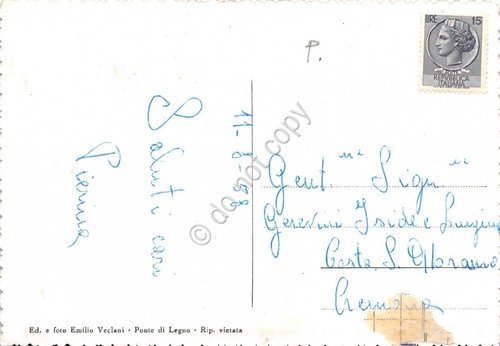 LIRE 15
POSTE
REPUBBLICA
ITALIANA
P.
11-8-58
Saluti cari
Pierina
Gent.me Sig.ne
Gerevini Iside e Luigina
Costa S. Abramo
Cremona
Ed. e foto Emilio Veclani - Ponte di Legno - Rip. vietata
© do not copy